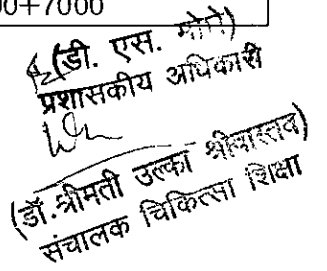 00+7000
(डी. एस.
प्रशासकीय अधिकारी
(डॉ.श्रीमती उल्का श्रीवास्तव)
संचालक चिकित्सा शिक्षा